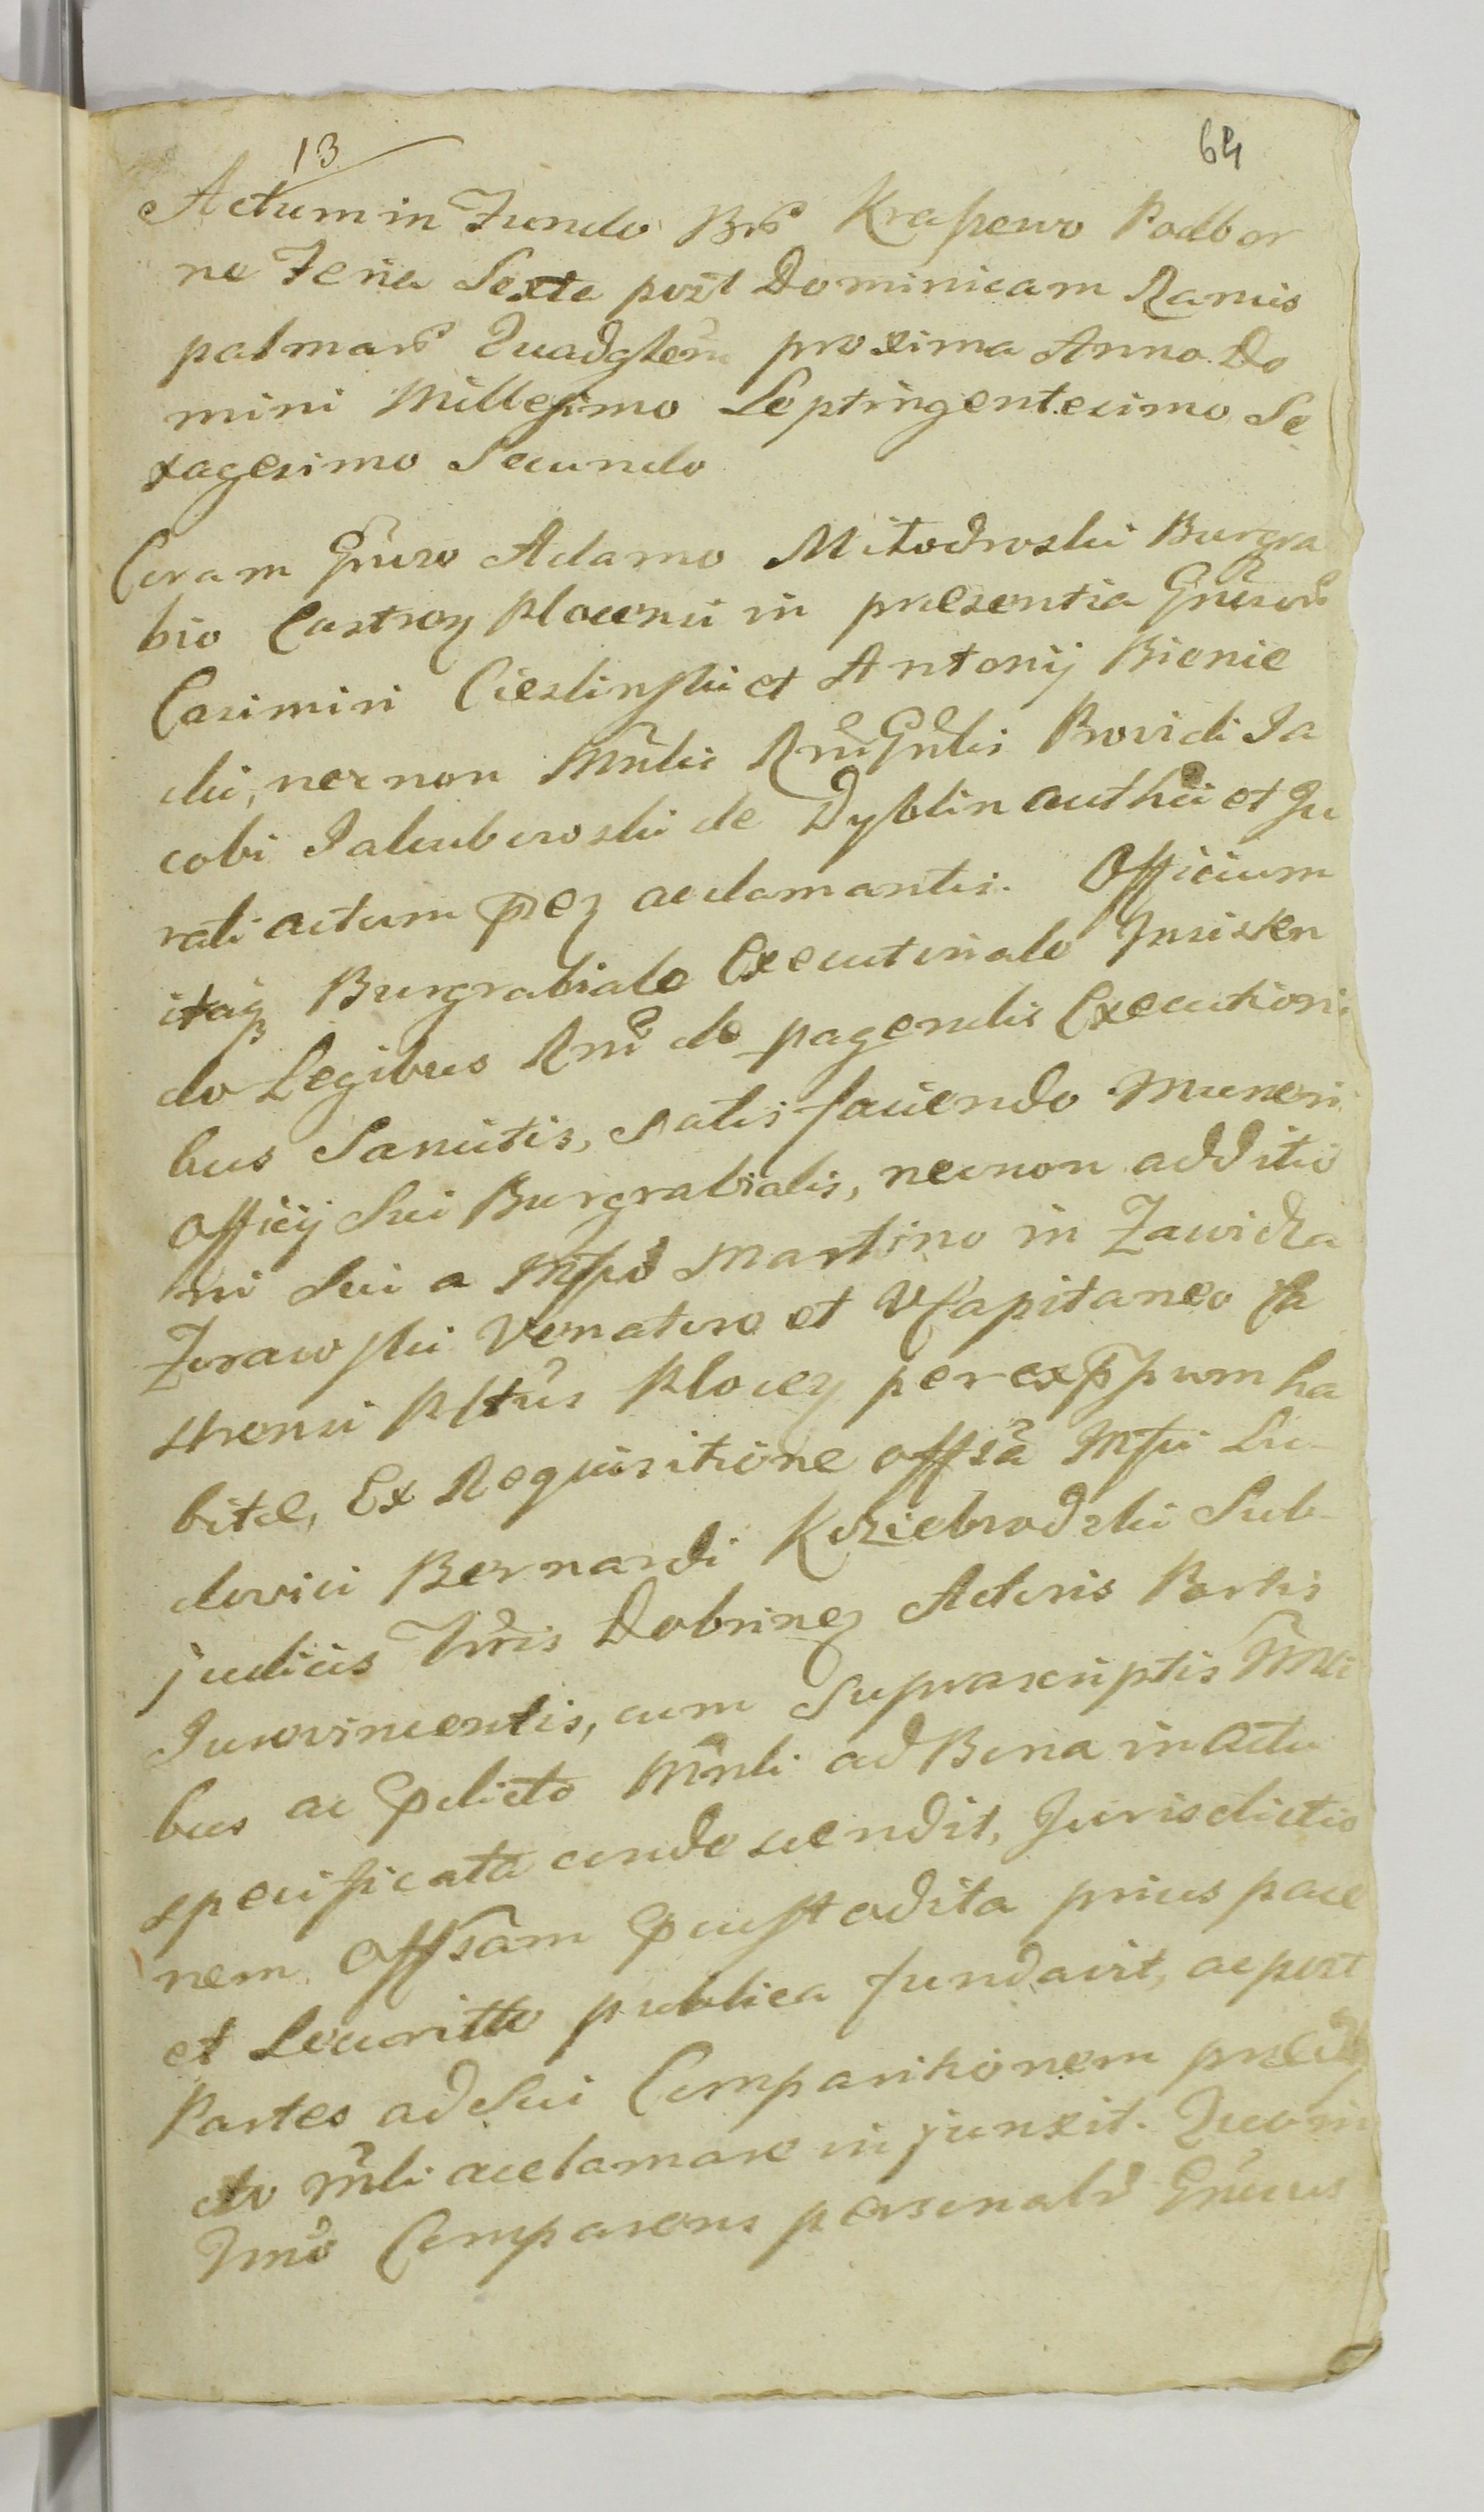 13
64
Actum in Fundo Brũ Krasewo Podbor
ne Feria Sexta post Dominicam Ramis
palmarũ Quadglem proxima Anno Do
mini Millesimo Septingentesimo Se
xagesimo Secundo
Coram Gñroso Adamo Mitodroski Burgra
bio Castren Plocensi in presentia Gñrosorũ
Casimiri Cieslinski et Antonij Bienie
cki, necnon Mñlis Rñi Gñlis Providi Ja
cobi Jakubowski de Dyblin authci et Ju
rati actum pñez acclamantis. Officium
itaq Burgrabiale Executoriale Insisten
do Legibus Rñi de pagendis Executioni
bus Sancitis, satisfaciendo muneri
Officij Sui Burgrabialis, necnon additio
ni Sui a Mfco Martino in Zawidza
Zurawski Venatore et VCapitaneo Ca
strensi Pltus Plocen per exppum ha
bitae, Ex Requisitione offsa Mfci Lu
dovici Bernardi Koziebrodzki Sub
judicis Trris Dobrinen Actoris Partis
Jurevincentis, cum Suprascriptis Nñli
bus ac pdicto Mñli ad Bona in Actu
specificata condescendit, Jurisdictio
nem offsam pcustodita prius pace
et Securitte publica fundavit, ac post
Partes ad Sui Comparitionem praedi
cto Mñli acclamare injunxit. Quo in
Tmno Comparens personalr Gñrosus